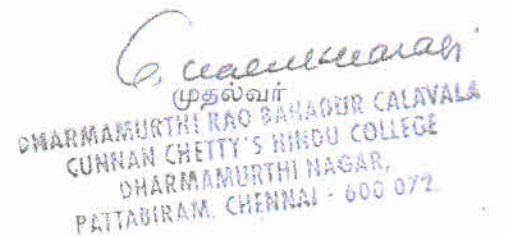 முதல்வர்
DHARMAMURTHI RAO BAHADUR CALAVALA
CUNNAN CHETTY'S HINDU COLLEGE
DHARMAMURTHI NAGAR,
PATTABIRAM, CHENNAI - 600 072.